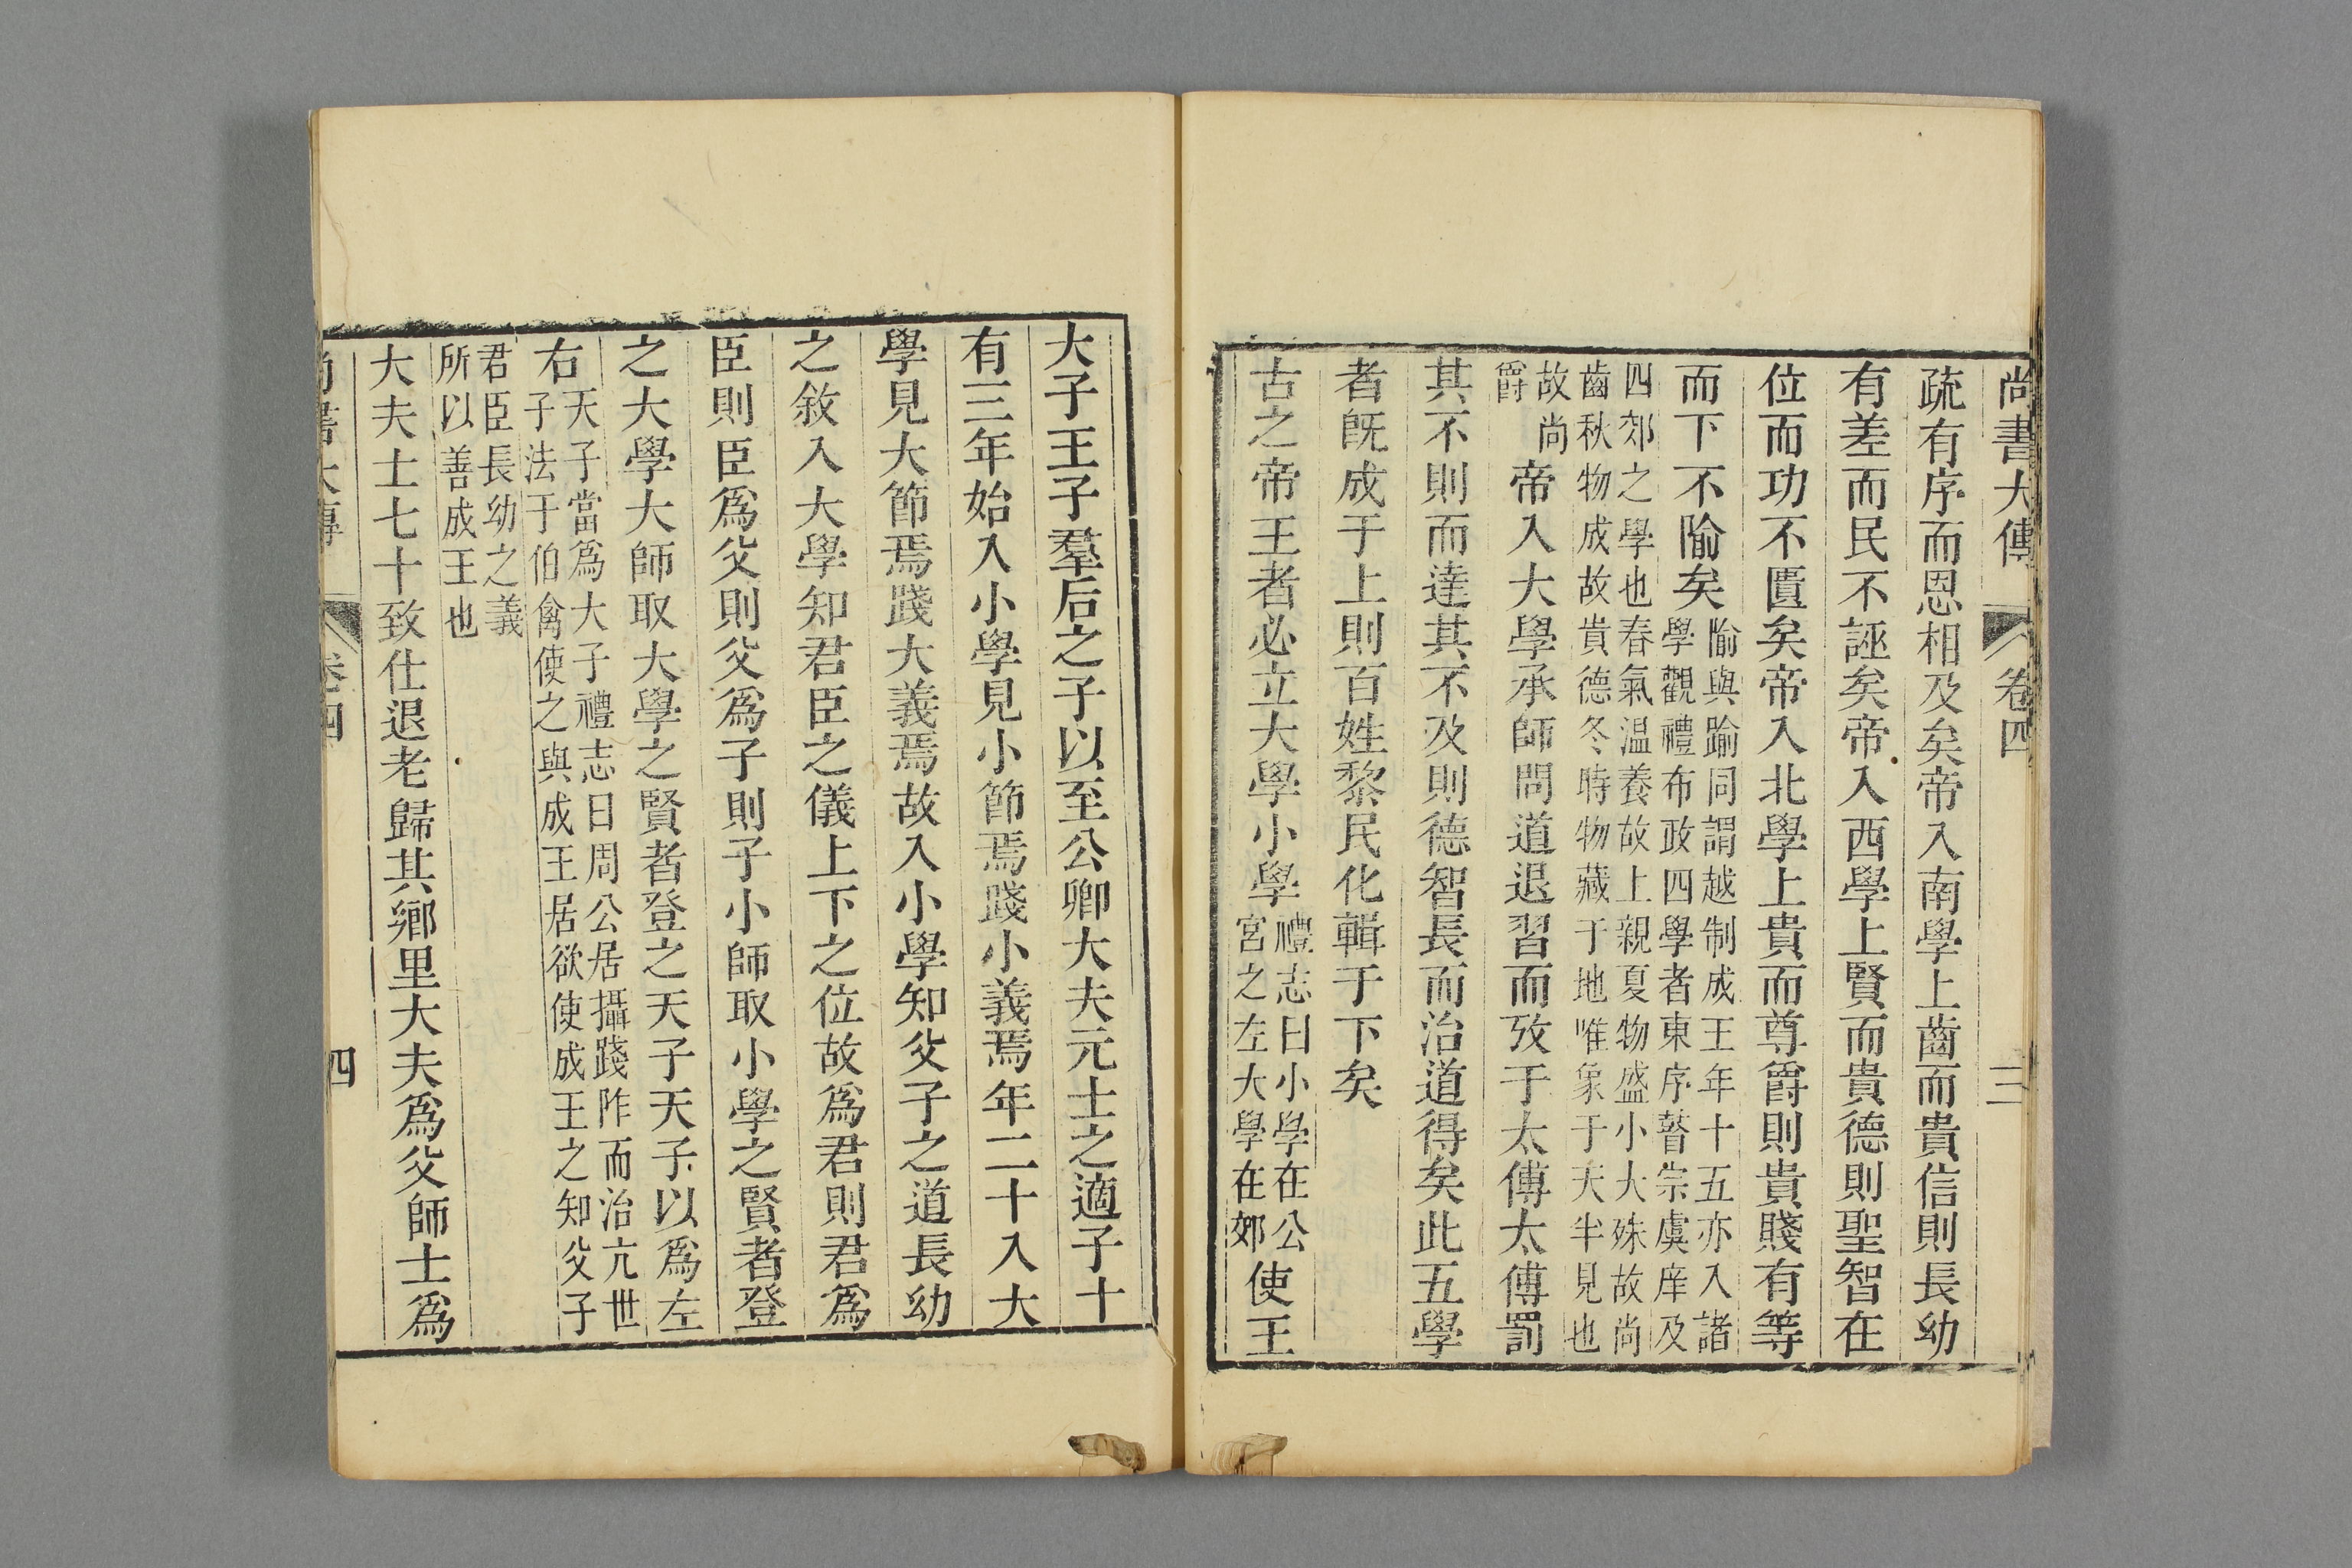 尚書大傳 卷四 三
疏有序而恩相及矣帝入南學上齒而貴信則長幼
有差而民不誣矣帝入西學上賢而貴德則聖智在
位而功不匱矣帝入北學上貴而尊爵則貴賤有等
而下不隃矣隃與踰同謂越制成王年十五亦入諸
學觀禮布政四學者東序瞽宗虞庠及
四郊之學也春氣温養故上親夏物盛小大殊故尚
齒秋物成故貴德冬時物藏于地唯象于天半見也
故尚
爵
帝入大學承師問道退習而攷于太傅太傅罰
其不則而達其不及則德智長而治道得矣此五學
者旣成于上則百姓黎民化輯于下矣
古之帝王者必立大學小學禮志曰小學在公
宮之左大學在郊
使王
大子王子羣后之子以至公卿大夫元士之適子十
有三年始入小學見小節焉踐小義焉年二十入大
學見大節焉踐大義焉故入小學知父子之道長幼
之敘入大學知君臣之儀上下之位故爲君則君爲
臣則臣爲父則父爲子則子小師取小學之賢者登
之大學大師取大學之賢者登之天子天子以爲左
右天子當爲大子禮志曰周公居攝踐阼而治亢世
子法于伯禽使之與成王居欲使成王之知父子
君臣長幼之義
所以善成王也
大夫士七十致仕退老歸其鄉里大夫爲父師士爲
尚書大傳 卷四 四